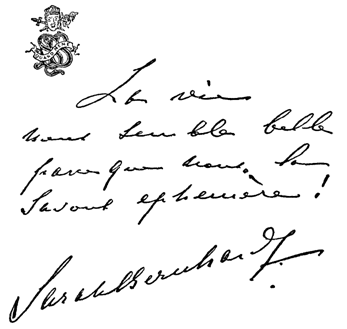 La vie
nous semble belle
parceque nous la
savons ephémère !
Sarah Bernhardt.